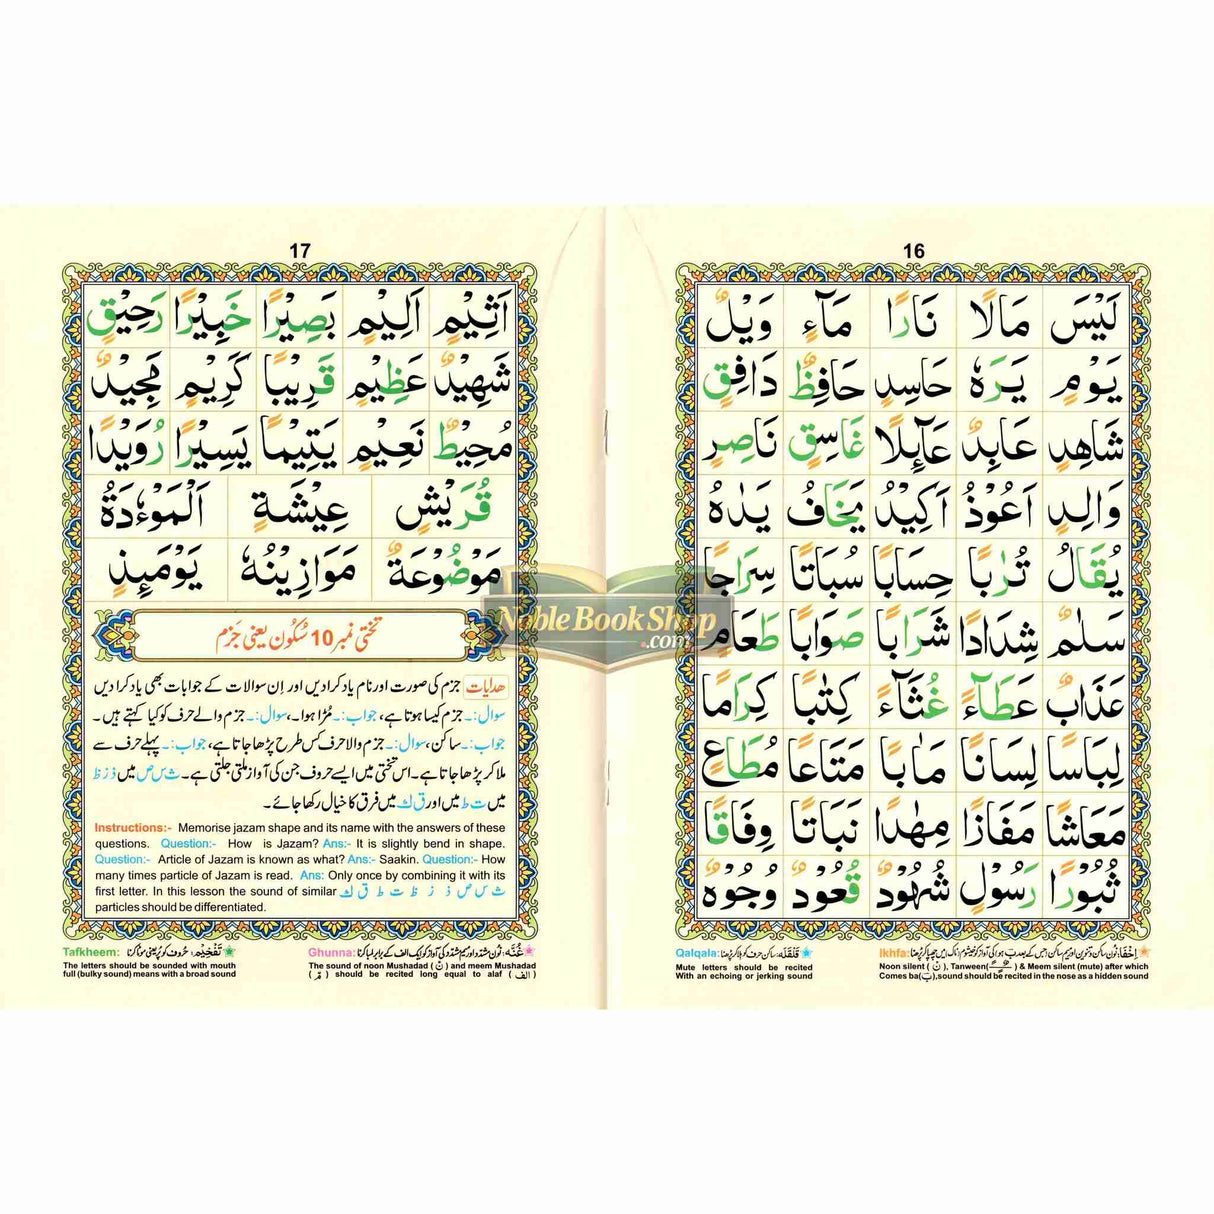 16
لَيْسَ مَالًا نَارًا مَآءٍ وَيْلٌ
يَوْمٍ يَرَهٗ حَاسِدٍ حَافِظٌ دَافِقٍ
شَاهِدٍ عَابِدٌ عَآئِلًا غَاسِقٍ نَاصِرٍ
وَالِدٍ اَعُوْذُ اَكِيْدُ يَخَافُ يَدٰهُ
يُقَالُ تُرٰبًا حِسَابًا سُبَاتًا سِرَاجًا
سَلٰمٌ شِدَادًا شَرَابًا صَوَابًا طَعَامٍ
عَذَابٌ عَطَآءً غُثَآءً كِتٰبًا كِرَامًا
لِبَاسًا لِسَانًا مَاٰبًا مَتَاعًا مُطَاعٍ
مَعَاشًا مَفَازًا مِهٰدًا نَبَاتًا وِفَاقًا
ثُبُوْرًا رَسُوْلٍ شُهُوْدٌ قُعُوْدٌ وُجُوْهٌ
Ikhfa: اِخْفَا: نون ساکن و تنوین اور میم ساکن جس کے بعد ب ہو انکی آواز کو خیشوم (ناک) میں چھپا کر پڑھنا
Noon silent ( نْ ), Tanween( ) & Meem silent (mute) after which
Comes ba(بَ),sound should be recited in the nose as a hidden sound
Qalqala: قَلْقَلَه: ساکن حرف کو ہلا کر پڑھنا
Mute letters should be recited
With an echoing or jerking sound
17
اَثِيْمٍ اَلِيْمٍ بَصِيْرًا خَبِيْرًا رَحِيْقٍ
شَهِيْدٌ عَظِيْمٍ قَرِيْبًا كَرِيْمٍ مَجِيْدٌ
مُحِيْطٌ نَعِيْمٍ يَتِيْمًا يَسِيْرًا رُوَيْدًا
قُرَيْشٍ عِيْشَةٍ اَلْمَوْءٗدَةُ
مَوْضُوْعَةٌ مَوَازِيْنُهٗ يَوْمَئِذٍ
تختی نمبر 10 سُکُون یعنی جَزم
ھدایات جزم کی صورت اور نام یاد کرا دیں اور اِن سوالات کے جوابات بھی یاد کرا دیں
سوال:۔ جزم کیسا ہوتا ہے، جواب:۔ مُڑا ہوا۔، سوال:۔ جزم والے حرف کو کیا کہتے ہیں۔
جواب:۔ ساکن، سوال:۔ جزم والا حرف کس طرح پڑھا جاتا ہے، جواب:۔ پہلے حرف سے
ملا کر پڑھا جاتا ہے۔ اس تختی میں ایسے حروف جن کی آواز ملتی جلتی ہے۔ ث س ص میں ذ ز ظ
میں ت ط میں اور ق ک میں فرق کا خیال رکھا جائے۔
Instructions:- Memorise jazam shape and its name with the answers of these
questions. Question:- How is Jazam? Ans:- It is slightly bend in shape.
Question:- Article of Jazam is known as what? Ans:- Saakin. Question:- How
many times particle of Jazam is read. Ans: Only once by combining it with its
first letter. In this lesson the sound of similar ث س ص ذ ز ظ ت ط ق ك
particles should be differentiated.
Ghunna: غُنَّه: نون مشدّد اور میم مشدّد کی آواز کو ایک الف کے برابر لمبا کرنا
The sound of noon Mushadad ( نّ ) and meem Mushadad
( مّ ) should be recited long equal to alaf ( الف )
Tafkheem: تَفْخِيْم: حروف کو پُر یعنی موٹا کرنا
The letters should be sounded with mouth
full (bulky sound) means with a broad sound
Noble Book Shop
.com